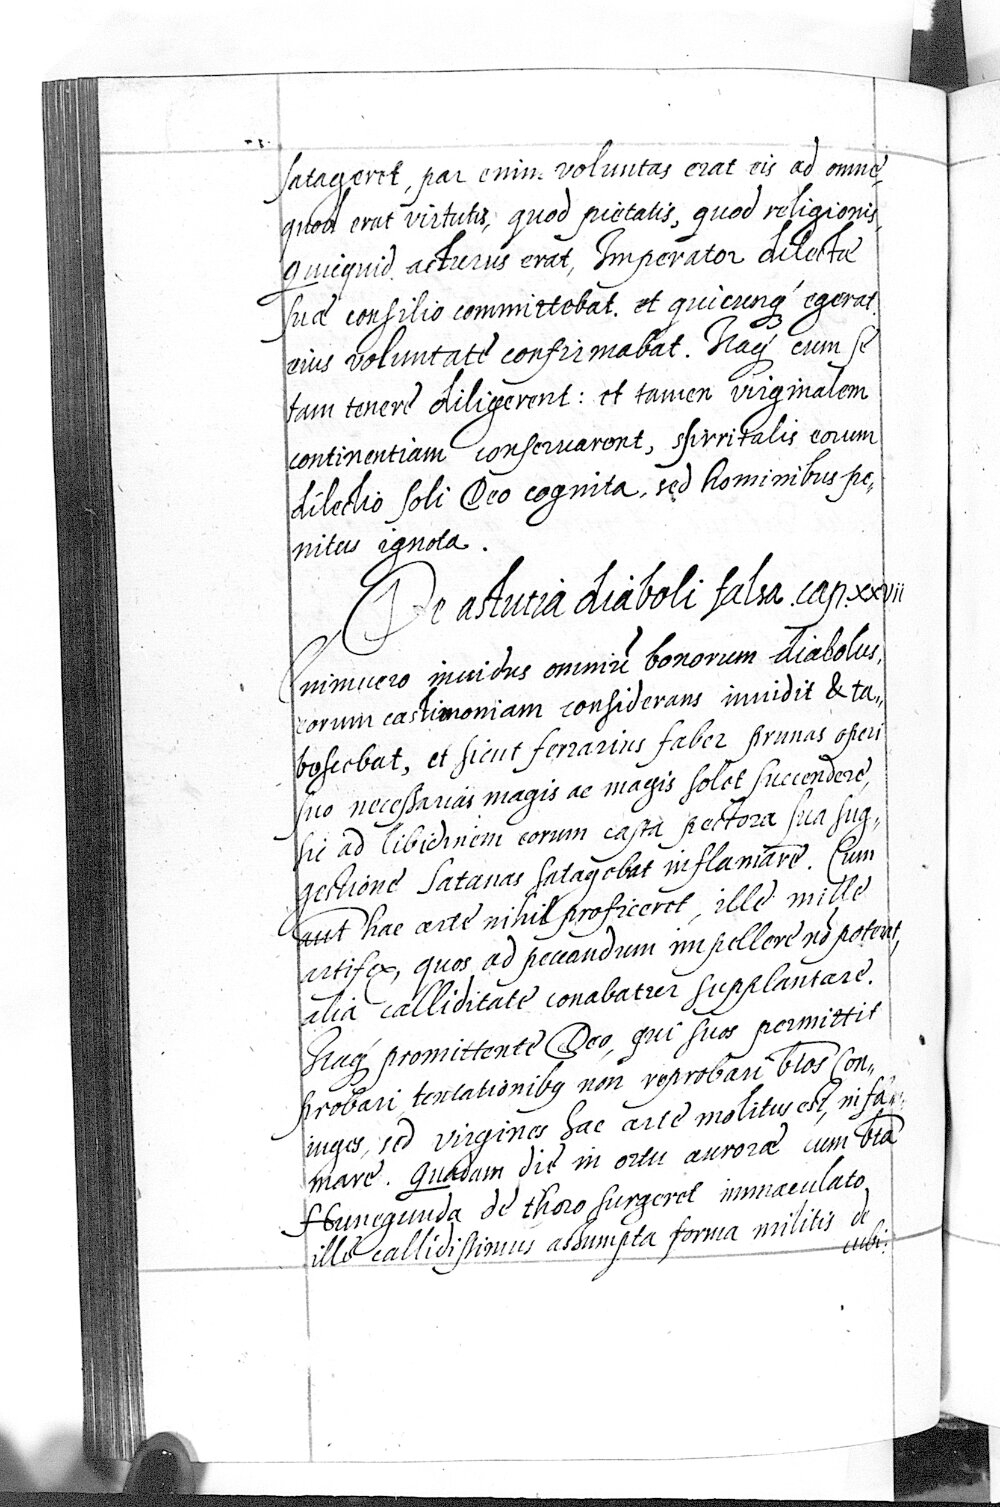 satageret, par enim voluntas erat eis ad omnē,
quod erat virtutis, quod pietatis, quod religionis,
Quicquid acturus erat, Imperator dilectæ
suæ consilio committebat. et quicunq́ egerat
eius voluntate confirmabat. Itaq́ cum se
tam tenere diligerent: et tamen virginalem
continentiam conseruarent, spirritalis eorum
dilectio soli Deo cognita, sed hominibus pe,,
nitus ignota.
De astutia diaboli falsa .cap. xxvii
Enimuero inuidus omniū bonorum diabolus,
eorum castimoniam considerans inuidit & ta,,
bescebat, et sicut ferrarius faber prunas operi
suo necessarias magis ac magis solet succendere,
sic ad libidinem eorum casta pectora sua sug,,
gestione Satanas satagebat inflamare. Cum
aut hac arte nihil proficeret, ille mille
artifex, quos ad peccandum impellere nō poterat,
alia calliditate conabatur supplantare.
Itaq́ promittente Deo, qui suos permittit
probari tentationibꝫ non reprobari btos con,,
iuges, sed virgines hac arte molitus est, infa,,
mare. Quadam die in ortu auroræ cum bta
Chunegunda de thoro surgeret immaculato
ille callidissimus assumpta forma militis de
cubi: